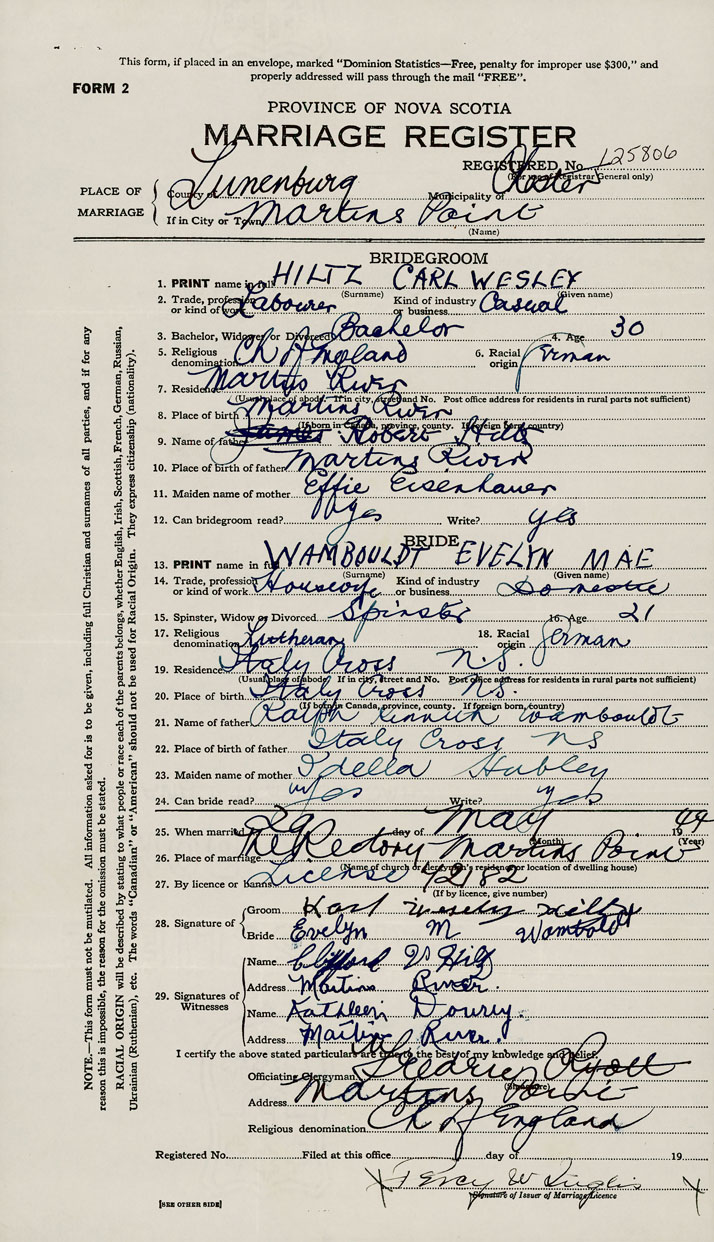 This form, if placed in an envelope, marked "Dominion Statistics—Free, penalty for improper use $300," and
properly addressed will pass through the mail "FREE".
FORM 2
PROVINCE OF NOVA SCOTIA
MARRIAGE REGISTER
REGISTERED No. 125806
(For use of Registrar General only)
PLACE OF MARRIAGE
County of Lunenburg Municipality of Chester
If in City or Town Martins Point
(Name)
BRIDEGROOM
1. PRINT name in full HILTZ CARL WESLEY
(Surname) (Given name)
2. Trade, profession or kind of work Labourer Kind of industry or business Casual
3. Bachelor, Widower or Divorced Bachelor 4. Age 30
5. Religious denomination Ch of England 6. Racial origin German
7. Residence Martins River
(Usual place of abode. If in city, street and No. Post office address for residents in rural parts not sufficient)
8. Place of birth Martins River
(If born in Canada, province, county. If foreign born, country)
9. Name of father James Robert Hiltz
10. Place of birth of father Martins River
11. Maiden name of mother Effie Eisenhauer
12. Can bridegroom read? yes Write? yes
BRIDE
13. PRINT name in full WAMBOULDT EVELYN MAE
(Surname) (Given name)
14. Trade, profession or kind of work Kind of industry or business Domestic
15. Spinster, Widow or Divorced Spinster 16. Age 21
17. Religious denomination Lutheran 18. Racial origin German
19. Residence Italy Cross N.S.
(Usual place of abode. If in city, street and No. Post office address for residents in rural parts not sufficient)
20. Place of birth Italy Cross N.S.
(If born in Canada, province, county. If foreign born, country)
21. Name of father Ralph Kenneth Wambouldt
22. Place of birth of father Italy Cross NS
23. Maiden name of mother Idella Hubley
24. Can bride read? yes Write? yes
25. When married 29 day of May 1949
(Month) (Year)
26. Place of marriage The Rectory Martins Point
(Name of church or clergyman's residence or location of dwelling house)
27. By licence or banns License 42182
(If by licence, give number)
28. Signature of
Groom Wesley Hiltz
Bride Evelyn M Wamboldt
29. Signatures of Witnesses
Name Clifford V Hiltz
Address Martins River.
Name Kathleen
Address Martin River.
I certify the above stated particulars are true to the best of my knowledge and belief.
Officiating Clergyman Fredric Ryott
(Signature)
Address Martins Point
Religious denomination Ch of England
Registered No. Filed at this office day of 19
Percy W Inglis
Signature of Issuer of Marriage Licence
[SEE OTHER SIDE]
NOTE.—This form must not be mutilated. All information asked for is to be given, including full Christian and surnames of all parties, and if for any
reason this is impossible, the reason for the omission must be stated.
RACIAL ORIGIN will be described by stating to what people or race each of the parents belongs, whether English, Irish, Scottish, French, German, Russian,
Ukrainian (Ruthenian), etc. The words "Canadian" or "American" should not be used for Racial Origin. They express citizenship (nationality).